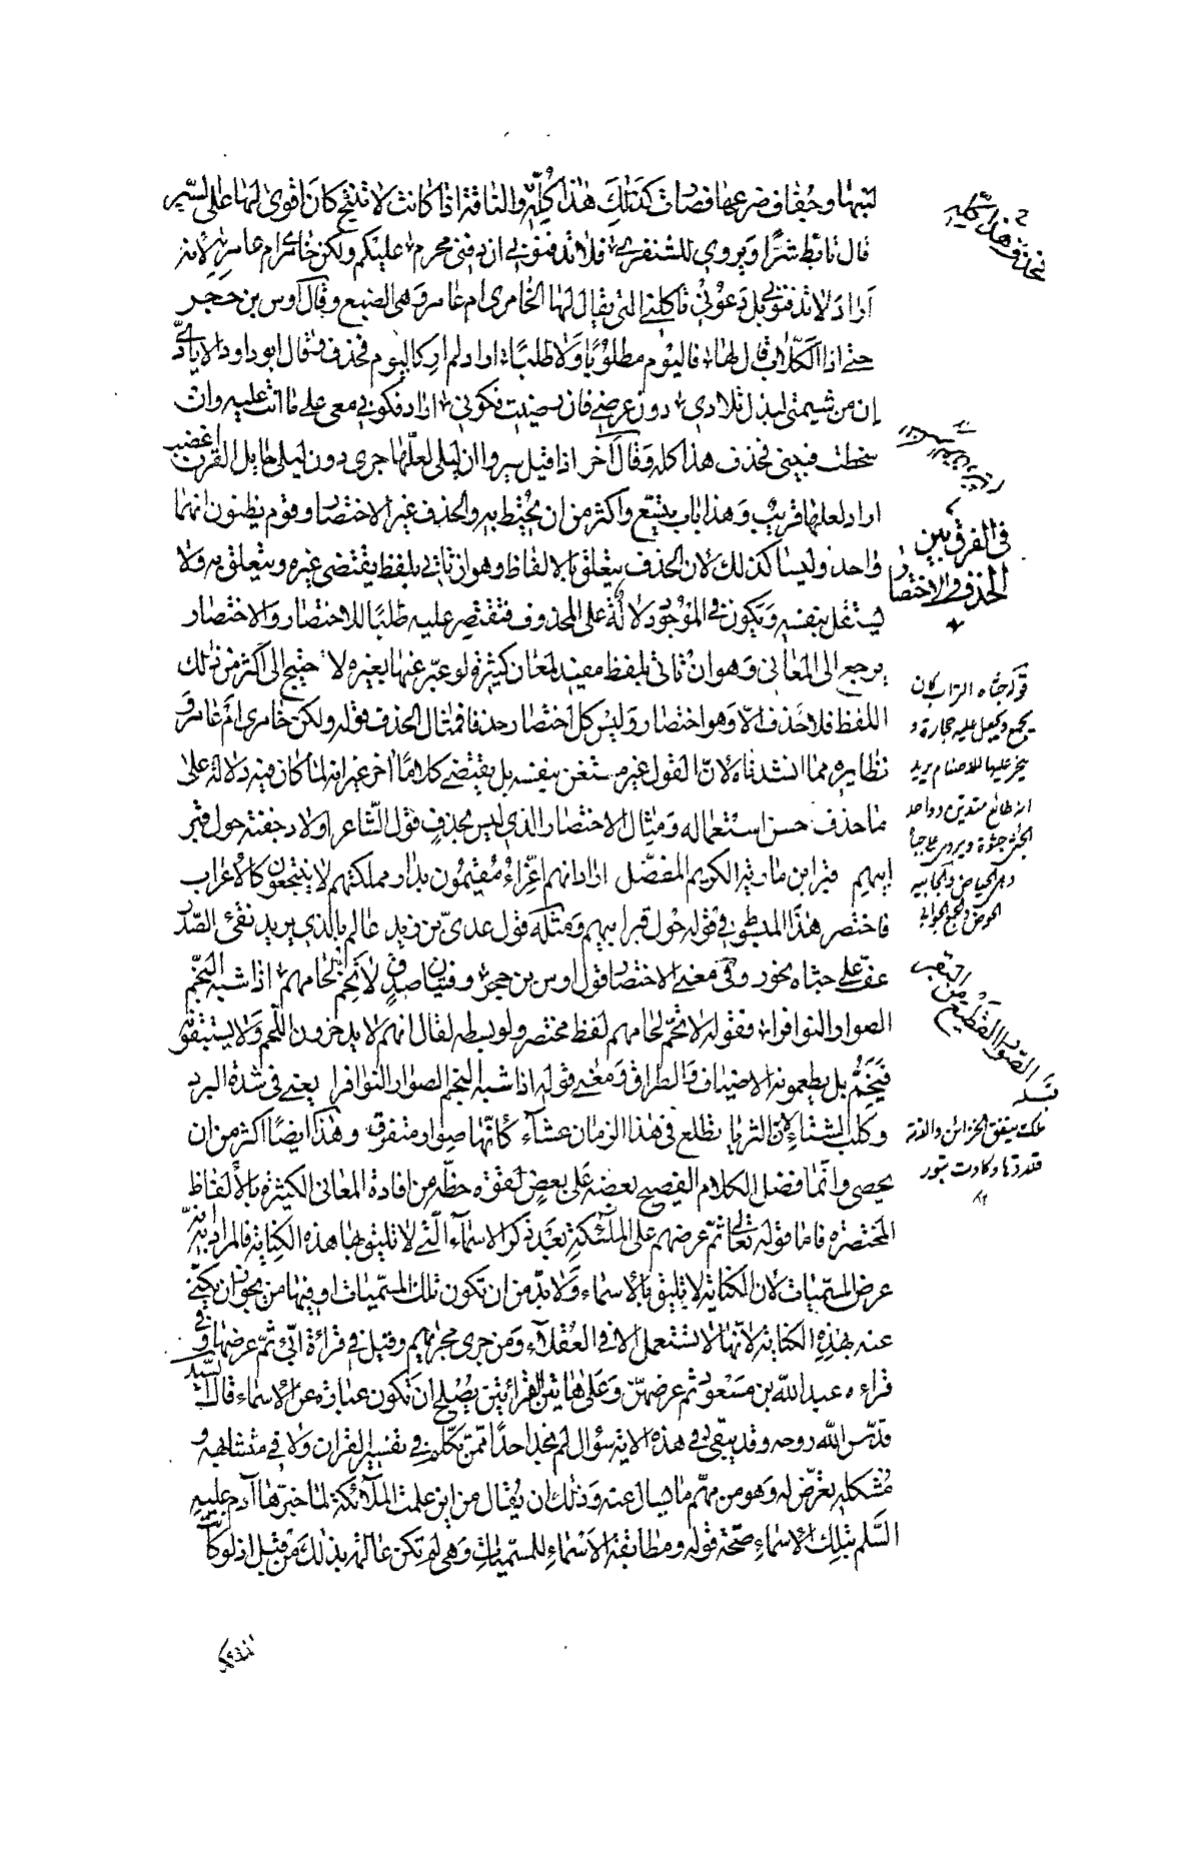 لبنها وجفاف ضرعها فصار كذلك هذا كله والناقة اذا كانت لا تنتج كان اقوى لها على السير
قال تابط شرا ويروى للشنفرى فلا تدفنونى ان دفنى محرم عليكم ولكن خامرى ام عامر لانه
اراد لا تدفنونى بل دعونى تاكلنى التى يقال لها خامرى ام عامر وهى الضبع وقال اوس بن حجر
حتى اذا الكلاب قال لها كاليوم مطلوبا ولا طلبا اراد لم ار كاليوم فحذف وقال ابو داود الايادى
إن من شيمتى لبذل تلادى دون عرضى فان رضيت فكونى اراد فكونى معى على ما انت عليه وان
سخطت فبينى فحذف هذا كله وقال آخر اذا قيل سيروا ان ليلى لعلها جرى دون ليلى مايل القرن اعضب
اراد لعلها قريب وهذا باب يتسع واكثر من ان يحيط به والحذف غير الاختصار وقوم يظنون انهما
واحد وليسا كذلك لان الحذف يتعلق بالالفاظ وهو ان تاتى بلفظ يقتضى غيره ويتعلق به ولا
يستقل بنفسه ويكون فى الموجود دلالة على المحذوف فتقتصر عليه طلبا للاختصار والاختصار
يرجع الى المعانى وهو ان تاتى بلفظ مفيد لمعان كثيرة لو عبر عنها بغيره لاحتيج الى اكثر من ذلك
اللفظ فلا حذف الا وهو اختصار وليس كل اختصار حذفا فمثال الحذف قوله ولكن خامرى ام عامر و
نظايره مما انشدناه لان القول غير مستغن بنفسه بل يقتضى كلاما آخر غير انه لما كان فيه دلالة على
ما حذف حسن استعماله ومثال الاختصار الذى ليس بحذف قول الشاعر اولاد جفنة حول قبر
ابيهم قبر ابن مارية الكريم المفضل اراد انهم اعزاء مقيمون بدار مملكتهم لا ينتجعون كالاعراب
فاختصر هذا المبسوط فى قوله حول قبر ابيهم ومثله قول عدى بن زيد عالم بالذى يريد نقى الصدر
عف على جثاه نحور وفى معنى الاختصار قول اوس بن حجر وفتيان صدق لا تخم لحامهم اذا شبه النجم
الصوار النوافرا فقوله لا تخم لحامهم لفظ مختصر ولو بسطه لقال انهم لا يدخرون اللحم ولا يستبقونه
فيخم بل يطعمونه الاضياف والطراق ومعنى قوله اذا شبه النجم الصوار النوافرا يعنى فى شدة البرد
وكلب الشتاء لان الثريا تطلع فى هذا الزمان عشاء كانها صوار متفرق وهذا ايضا اكثر من ان
يحصى وانما فضل الكلام الفصيح بعضه على بعض لقوة حظه من افادة المعانى الكثيرة بالالفاظ
المختصرة فاما قوله تعالى ثم عرضهم على الملئكة بعد ذكر الاسماء التى لا تليق بها هذه الكناية فالمراد به انه
عرض المسميات لان الكناية لا تليق بالاسماء ولا بد من ان تكون تلك المسميات او فيها من يجوز ان يكنى
عنه بهذه الكناية لانها لا تستعمل الا فى العقلاء ومن جرى مجراهم وقيل فى قرائة ابى ثم عرضها وفى
قراءه عبد الله بن مسعود ثم عرضهن وعلى هاتين القرائتين يصلح ان تكون عبارة عن الاسماء قال السيد
قدس الله روحه وقد يبقى فى هذه الاية سؤال لم نجد احدا ممن تكلم فى تفسير القران ولا فى متشابهه و
مشكله تعرض له وهو من مهم ما يسال عنه وذلك ان يقال من اين علمت الملائكة لما خبرها آدم عليه
السلم بتلك الاسماء صحة قوله ومطابقة الاسماء للمسميات وهى لم تكن عالمة بذلك من قبل اذ لو كانت
فحذف هذا كله
فى الفرق بين
الحذف والاختصار
قوله جثاه التراب كان
يجمع ويجعل عليه حجارة و
ينحر عليها للاصنام يريد
انه طائع متدين وواحد
الجثى جثوة
الصوار القطيع من
البقر